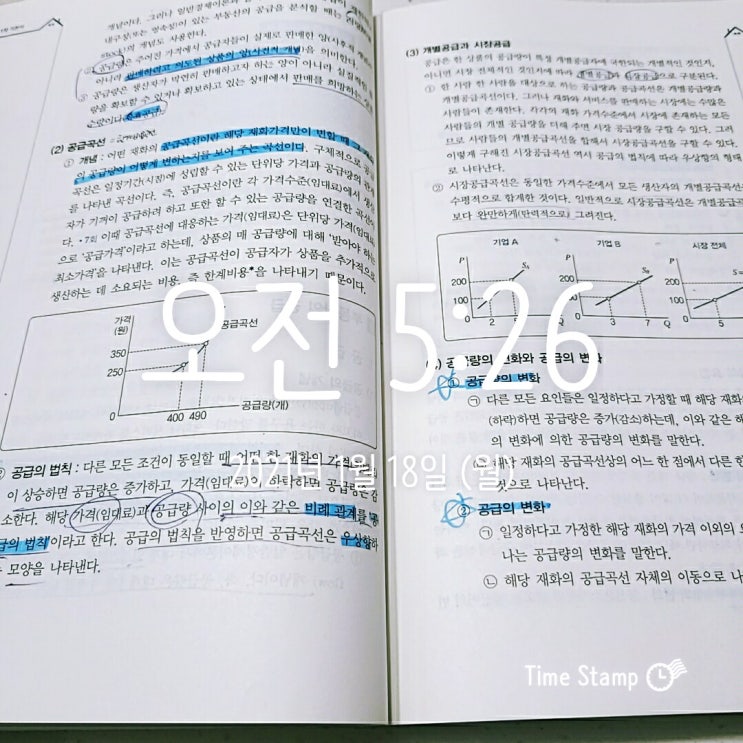 개념이다. 그러나 일반경제이론과
내구성(또는 영속성)이 있는 부동산의 공급을 분석할 때는
stock)의 개념도 사용한다.
② 공급량은 주어진 가격에서 공급자들이 실제로 판매한 양(사후적 개념)
아니라 판매하려고 의도된 상품의 양(사전적 개념)을 의미한다.
③ 공급량은 생산자가 막연히 판매하고자 하는 양이 아니라 실질
량을 확보할 수 있거나 확보하고 있는 상태에서 판매를 희망하는
유효공급
(2) 공급곡선
① 개념 : 어떤 재화의 공급곡선이란 해당 재화가격만이 변할 때 그
의 공급량이 어떻게 변하는지를 보여 주는 곡선이다. 구체적으로
곡선은 일정기간(시점)에 성립할 수 있는 단위당 가격과 공급량의 관계
를 나타낸 곡선이다. 즉, 공급곡선이란 각 가격수준(임대료)에서 생산
자가 기꺼이 공급하려 하고 또한 할 수 있는 공급량을 연결한 곡선이
다. •7회 이때 공급곡선에 대응하는 가격(임대료)은 단위당 가격(임대료)
으로 '공급가격'이라고 하는데, 상품의 매 공급량에 대해 '받아야 하는
최소가격'을 나타낸다. 이는 공급곡선이 공급자가 상품을 추가적으로
생산하는 데 소요되는 비용, 즉 한계비용*을 나타내기 때문이다.
가격
(원)
공급곡선
350
250
0
400 490
공급량(개)
공급의 법칙 : 다른 모든 조건이 동일할 때 어떤 한 재화의 가격
이 상승하면 공급량은 증가하고, 가격(임대료)이 하락하면 공급량은 감
소한다. 해당 가격(임대료)과 공급량 사이의 이와 같은 비례 관계를
급의 법칙'이라고 한다. 공급의 법칙을 반영하면 공급곡선은 우상향하
는 모양을 나타낸다.
(3) 개별공급과 시장공급
공급은 한 상품의 공급량이 특정 개별공급자에 국한되는 개별적인 것인지,
아니면 시장 전체적인 것인지에 따라 개별공급과 시장공급으로 구분된다.
① 한 사람 한 사람을 대상으로 하는 공급량과 공급곡선은 개별공급량과
개별공급곡선이다. 그러나 재화와 서비스를 판매하는 시장에는 수많은
사람들이 존재한다. 각각의 재화 가격수준에서 시장에 존재하는 모든
사람들의 개별 공급량을 더해 주면 시장 공급량을 구할 수 있다. 그러
므로 사람들의 개별공급곡선을 합해서 시장공급곡선을 구할 수 있다.
이렇게 구해진 시장공급곡선 역시 공급의 법칙에 따라 우상향의 형태
로 나타난다.
② 시장공급곡선은 동일한 가격수준에서 모든 생산자의 개별공급곡선을
수평적으로 합계한 것이다. 일반적으로 시장공급곡선은 개별공급곡선
보다 완만하게(탄력적으로) 그려진다.
기업 A
기업 B
시장 전체
P
200
100
0
2
Q
P
200
100
0
3 7 Q
P
200
100
0
5
공급량의 변화와 공급의 변화
① 공급량의 변화
㉠ 다른 모든 요인들은 일정하다고 가정할 때 해당 재화
(하락)하면 공급량은 증가(감소)하는데, 이와 같은 해
의 변화에 의한 공급량의 변화를 말한다.
해당 재화의 공급곡선상의 어느 한 점에서 다른 한
것으로 나타난다.
② 공급의 변화
㉠ 일정하다고 가정한 해당 재화의 가격 이외의
나는 공급량의 변화를 말한다.
㉡ 해당 재화의 공급곡선 자체의 이동으로
오전 5:26
2021년 1월 18일 (월)
Time Stamp